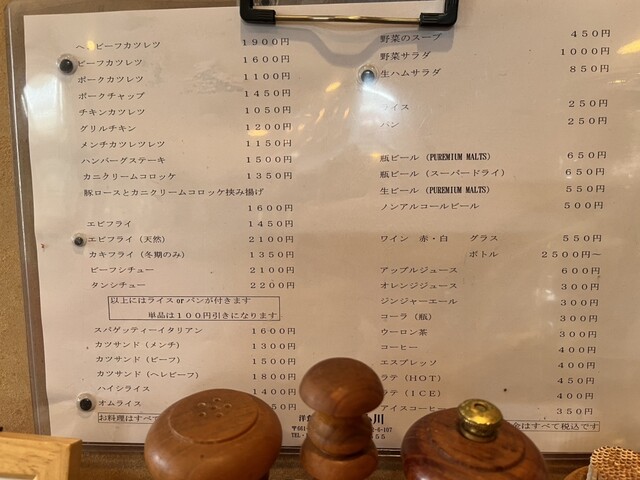 ヘレビーフカツレツ 1900円
ビーフカツレツ 1600円
ポークカツレツ 1100円
ポークチャップ 1450円
チキンカツレツ 1050円
グリルチキン 1200円
メンチカツレツレツ 1150円
ハンバーグステーキ 1500円
カニクリームコロッケ 1350円
豚ロースとカニクリームコロッケ挟み揚げ
1600円
エビフライ 1450円
エビフライ（天然） 2100円
カキフライ（冬期のみ） 1350円
ビーフシチュー 2100円
タンシチュー 2200円
以上にはライス or パンが付きます
単品は１００円引きになります
スパゲッティーイタリアン 1600円
カツサンド（メンチ） 1300円
カツサンド（ビーフ） 1500円
カツサンド（ヘレビーフ） 1800円
ハイシライス 1400円
オムライス 50円
お料理はすべて
野菜のスープ 450円
野菜サラダ 1000円
生ハムサラダ 850円
ライス 250円
パン 250円
瓶ビール（PUREMIUM MALTS） 650円
瓶ビール（スーパードライ） 650円
生ビール（PUREMIUM MALTS） 550円
ノンアルコールビール 500円
ワイン 赤・白 グラス 550円
ボトル 2500円～
アップルジュース 600円
オレンジジュース 300円
ジンジャーエール 300円
コーラ（瓶） 300円
ウーロン茶 300円
コーヒー 400円
エスプレッソ 400円
ラテ（HOT） 450円
ラテ（ICE） 400円
アイスコーヒー 350円
金はすべて税込です
洋食 川
〒661-
TEL